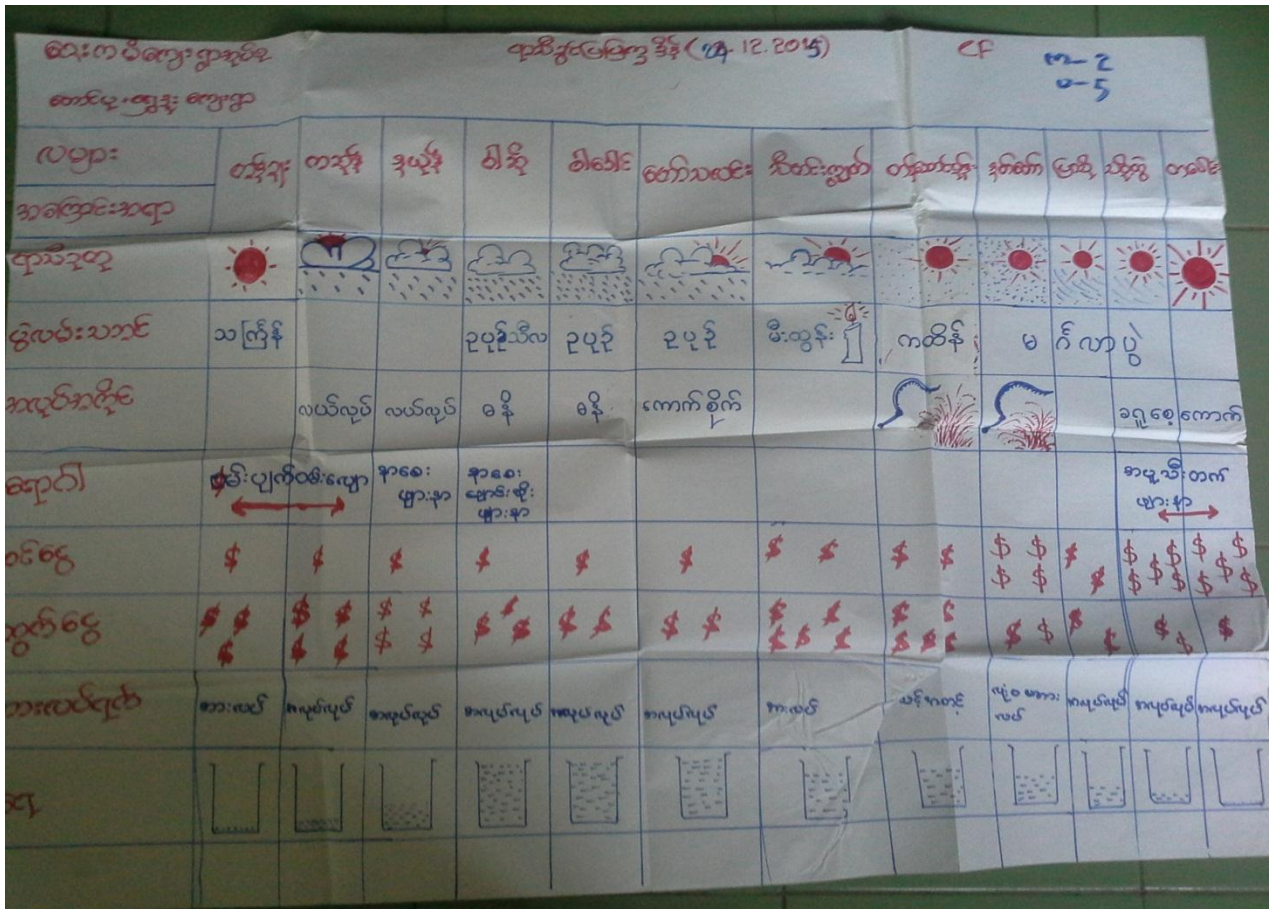 ရာသီခွင်ပြက္ခဒိန် (24.12.2015)
CF
က-2
မ-5
လများ
တန်ခူး ကဆုန် နယုန် ဝါဆို ဝါခေါင် တော်သလင်း သီတင်းကျွတ် တန်ဆောင်မုန်း နတ်တော် ပြာသို တပို့တွဲ တပေါင်း
အကြောင်းအရာ
ရာသီဥတု
ပွဲလမ်းသဘင် သင်္ကြန် ဥပုဒ်သီလ ဥပုဒ် ဥပုဒ် မီးထွန်း ကထိန် မင်္ဂလာပွဲ
အလုပ်အကိုင် လယ်လုပ် လယ်လုပ် ဓနိ ဓနိ ကောက်စိုက် ခရုစေ့ကောက်
ရောဂါ ဝမ်းပျက်ဝမ်းလျော နှာစေး ဖျားနာ နှာစေး ချောင်းဆိုး ဖျားနာ ဖျားနာ
ဝင်ငွေ $ $ $ $ $ $ $ $ $ $ $ $ $ $ $ $ $ $ $ $ $ $ $ $ $ $
ထွက်ငွေ
အားလပ်ရက် အားလပ် အလုပ်လုပ် အလုပ်လုပ် အလုပ်လုပ် အလုပ်လုပ် အလုပ်လုပ် အားလပ် သင့်အတင့် အလုပ်လုပ် အလုပ်လုပ် အလုပ်လုပ်
ရေ